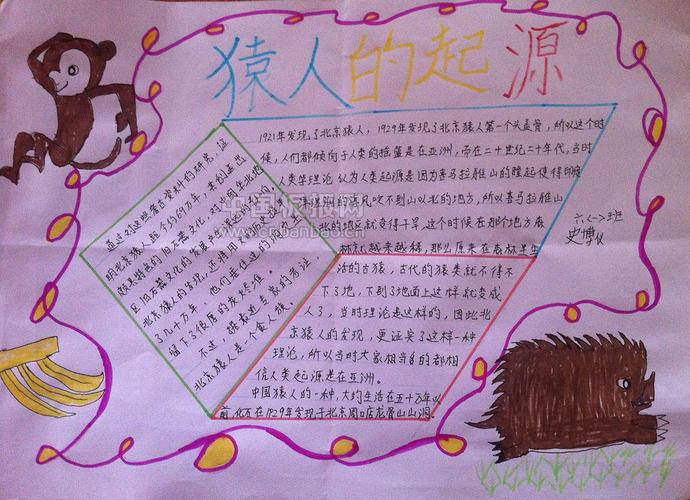 猿人的起源
1921年发现了北京猿人，1929年发现了北京猿人第一个头盖骨，所以这个时
候，人们都倾向于人类的摇篮是在亚洲，而在二十世纪二十年代，当时
人类学理论认为人类起源是因为喜马拉雅山的隆起使得印度
洋湿润的季风吹不到山以北的地方，所以喜马拉雅山
以北的地区就变得干旱，这个时候在那个地方森
林就越来越稀，那么原来在森林里生
活的古猿，古代的猿类就不得不
下了地，下到了地面上这样就变成
人了，当时理论是这样的，因此北
京猿人的发现，更证实了这样一种
理论，所以当时大家相当多的都相
信人类起源是在亚洲。
中国猿人的一种，大约生活在五十万年以
前 在1929年发现于北京周口店龙骨山山洞
通过对这些蒙古资料的研究，证
明北京猿人距今约69万年，去创造出
颇具特色的旧石器文化，对中国华北地
区旧石器文化的发展产生深远的
北京猿人的生
了几十万年，他们居住过的
留下了很厚的灰烬堆。
不过，据最近专家的考证，
北京猿人是一个食人族。
六、(二)班
史博仪
中国板报网
cnbanbao.cn